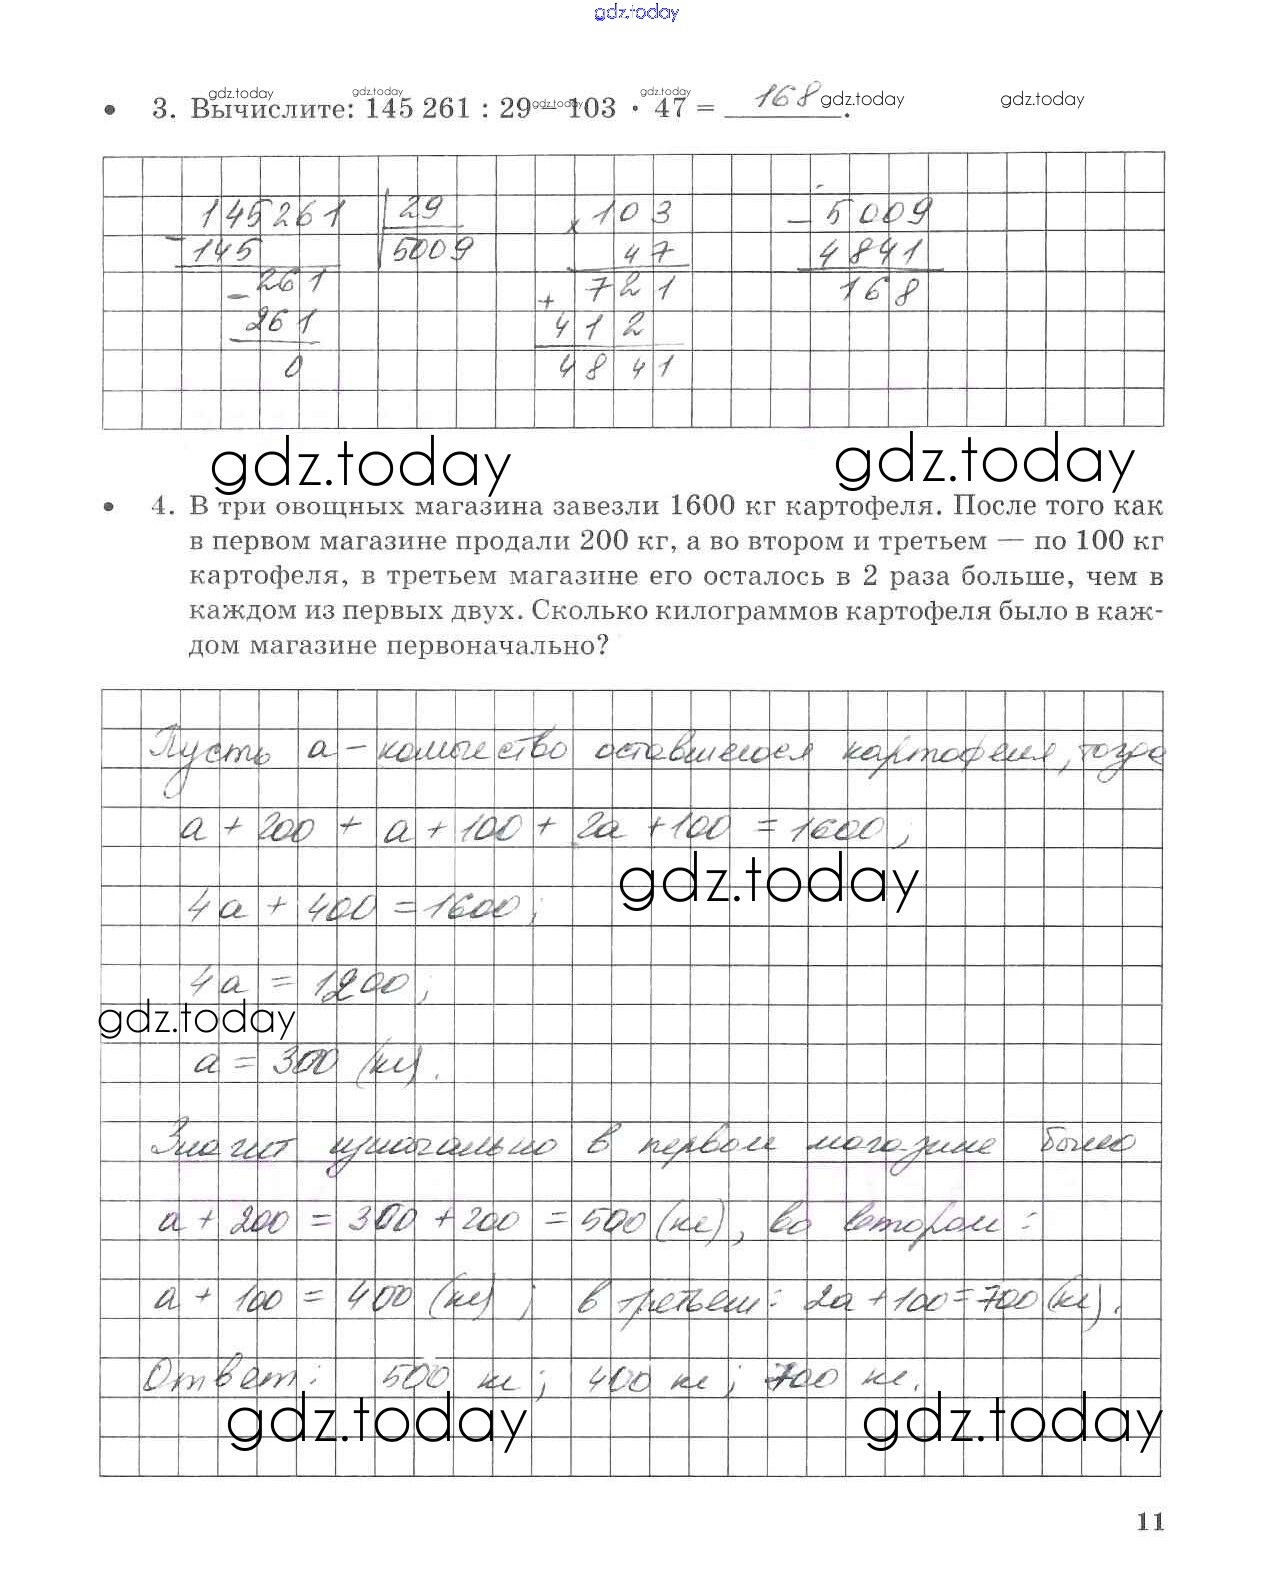 gdz.today
gdz.today gdz.today gdz.today gdz.today gdz.today gdz.today
• 3. Вычислите: 145 261 : 29 — 103 · 47 = 168.
145261 29 × 103 - 5009
- 145 5009 47 4841
- 261 + 721 168
261 412
0 4841
gdz.today gdz.today
• 4. В три овощных магазина завезли 1600 кг картофеля. После того как
в первом магазине продали 200 кг, а во втором и третьем — по 100 кг
картофеля, в третьем магазине его осталось в 2 раза больше, чем в
каждом из первых двух. Сколько килограммов картофеля было в каж-
дом магазине первоначально?
Пусть а - количество оставшегося картофеля, тогда
а + 200 + а + 100 + 2а + 100 = 1600;
gdz.today
4а + 400 = 1600;
4а = 1200;
gdz.today
а = 300 (кг).
Значит изначально в первом магазине было
а + 200 = 300 + 200 = 500 (кг), во втором:
а + 100 = 400 (кг); в третьем: 2а + 100 = 700 (кг).
Ответ: 500 кг; 400 кг; 700 кг.
gdz.today gdz.today
11